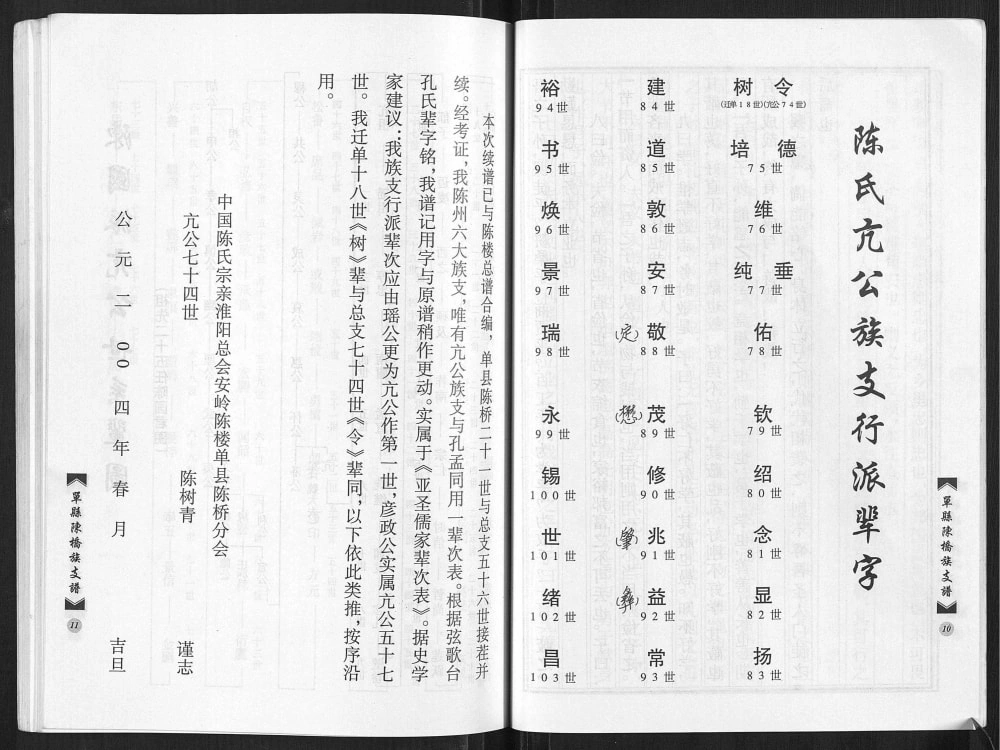 陈氏亢公族支行派辈字
令 树
(迁单18世)(亢公74世)
德 培
75世
维
76世
垂 纯
77世
佑
78世
钦
79世
绍
80世
念
81世
显
82世
扬
83世
建
84世
道
85世
敦
86世
安
87世
敬(定)
88世
茂(懋)
89世
修
90世
兆(肇)
91世
益(彝)
92世
常
93世
裕
94世
书
95世
焕
96世
景
97世
瑞
98世
永
99世
锡
100世
世
101世
绪
102世
昌
103世
單縣陳橋族支譜
10
本次续谱已与陈楼总谱合编，单县陈桥二十一世与总支五十六世接茬并
续。经考证，我陈州六大族支，唯有亢公族支与孔孟同用一辈次表。根据弦歌台
孔氏辈字铭，我谱记用字与原谱稍作更动。实属于《亚圣儒家辈次表》。据史学
家建议：我族支行派辈次应由瑶公更为亢公作第一世，彦政公实属亢公五十七
世。我迁单十八世《树》辈与总支七十四世《令》辈同，以下依此类推，按序沿
用。
中国陈氏宗亲淮阳总会安岭陈楼单县陈桥分会
亢公七十四世 陈树青 谨志
公元二00四年春月 吉旦
單縣陳橋族支譜
11